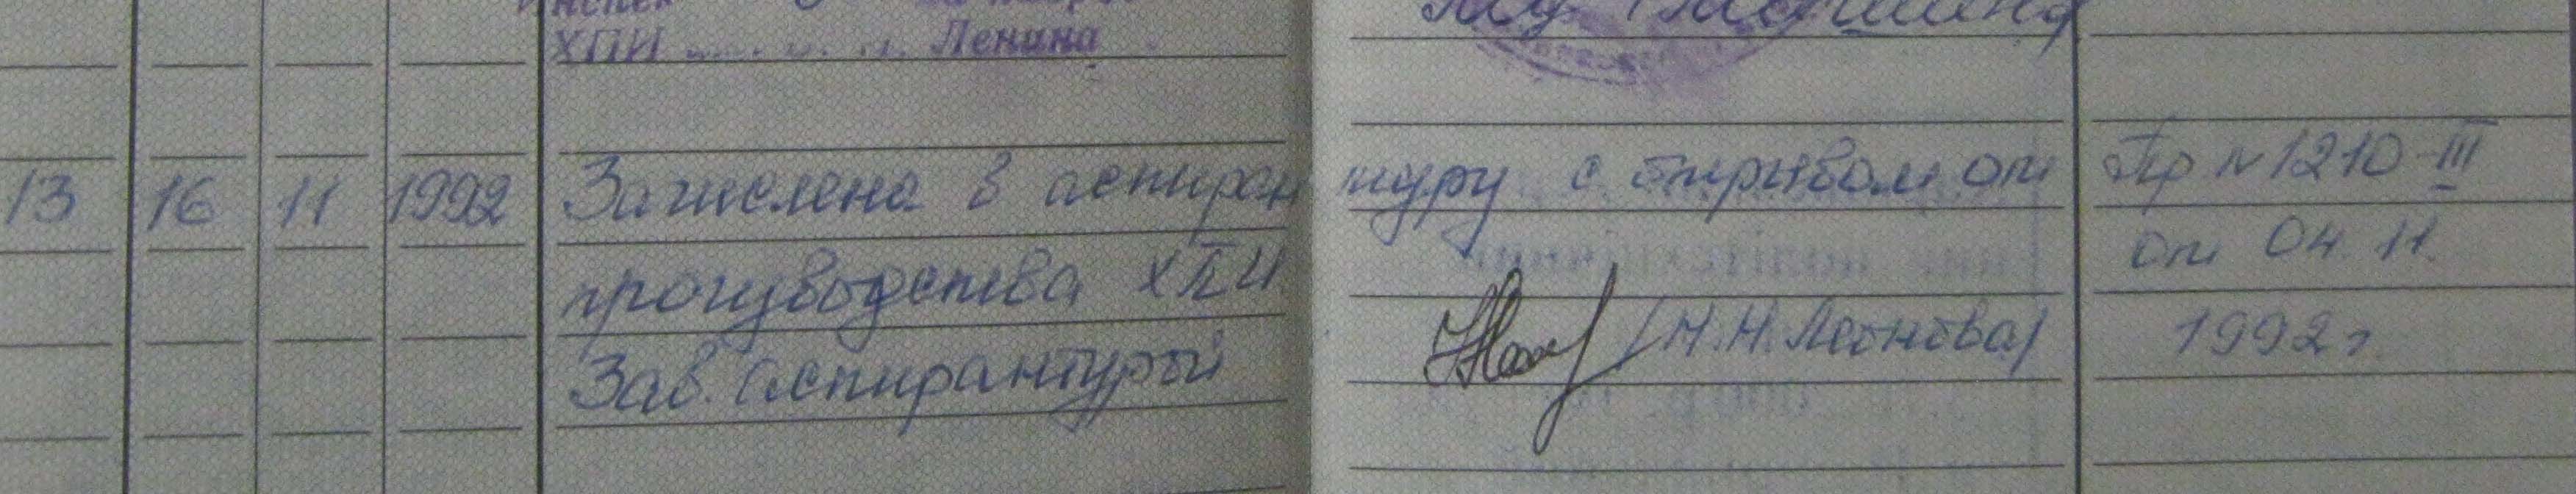 ХПИ Ленина
13 16 11 1992 Зачислена в аспирантуру с отрывом от Пр №1210-III
производства ХПИ от 04.11.
Зав. аспирантурой /Н.Н. Леонова/ 1992 г.